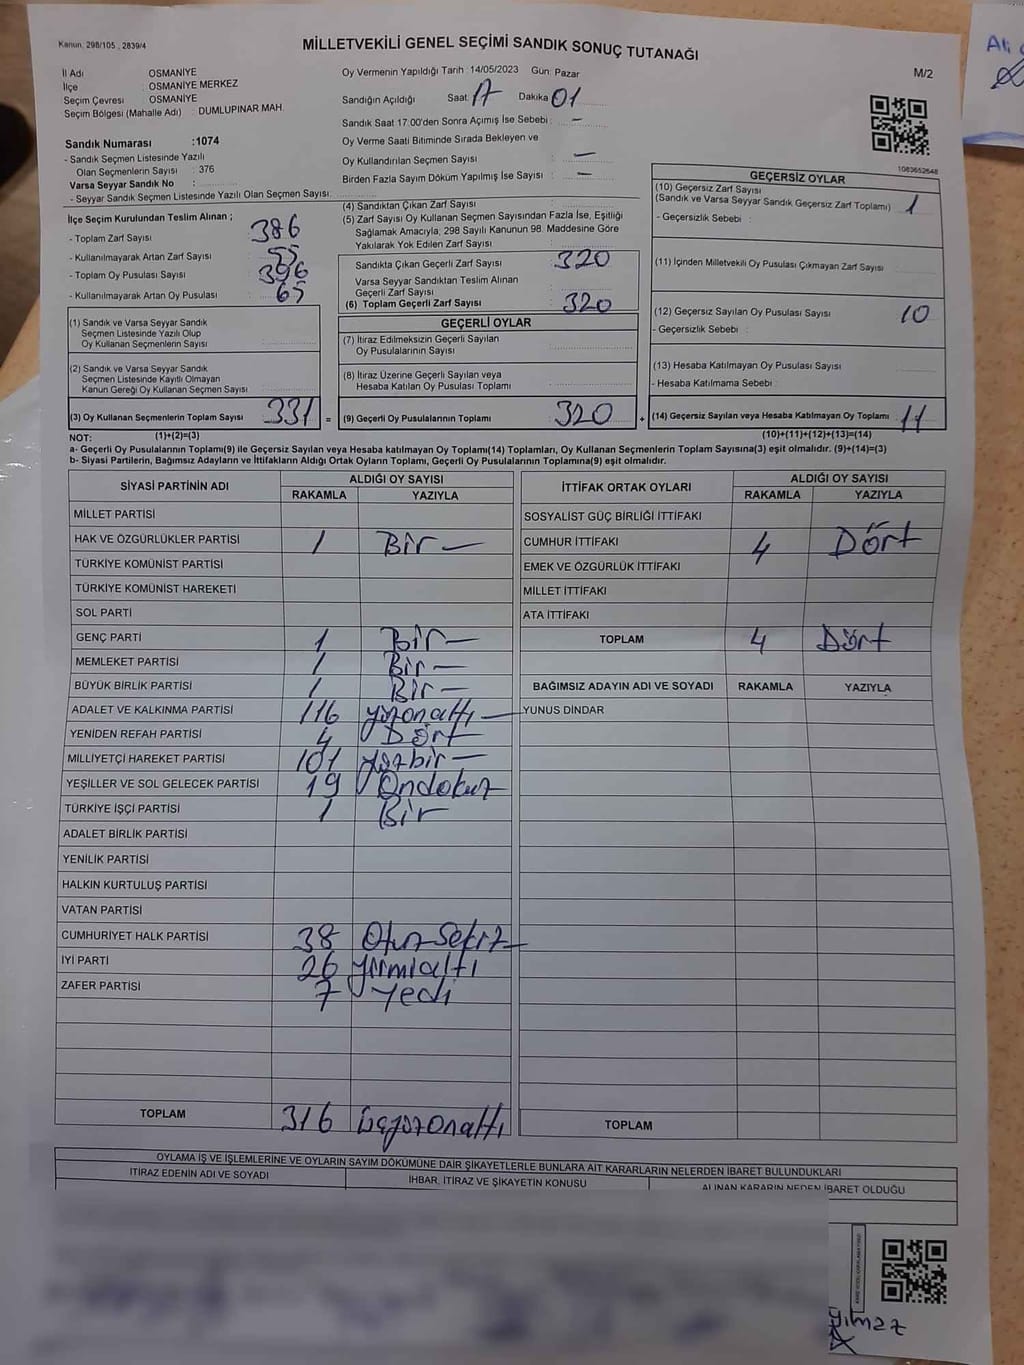 Kanun, 298/105 , 2839/4
MİLLETVEKİLİ GENEL SEÇİMİ SANDIK SONUÇ TUTANAĞI
M/2
İl Adı : OSMANİYE
İlçe : OSMANİYE MERKEZ
Seçim Çevresi : OSMANİYE
Seçim Bölgesi (Mahalle Adı) : DUMLUPINAR MAH.
Sandık Numarası :1074
- Sandık Seçmen Listesinde Yazılı
Olan Seçmenlerin Sayısı : 376
Varsa Seyyar Sandık No :
- Seyyar Sandık Seçmen Listesinde Yazılı Olan Seçmen Sayısı:
Oy Vermenin Yapıldığı Tarih : 14/05/2023 Gün: Pazar
Sandığın Açıldığı Saat 17 Dakika 01
Sandık Saat 17.00'den Sonra Açımış İse Sebebi : -
Oy Verme Saati Bitiminde Sırada Bekleyen ve
Oy Kullandırılan Seçmen Sayısı : -
Birden Fazla Sayım Döküm Yapılmış İse Sayısı : -
1083652648
İlçe Seçim Kurulundan Teslim Alınan ;
- Toplam Zarf Sayısı : 386
- Kullanılmayarak Artan Zarf Sayısı : 55
- Toplam Oy Pusulası Sayısı : 396
- Kullanılmayarak Artan Oy Pusulası : 65
(1) Sandık ve Varsa Seyyar Sandık
Seçmen Listesinde Yazılı Olup
Oy Kullanan Seçmenlerin Sayısı
(2) Sandık ve Varsa Seyyar Sandık
Seçmen Listesinde Kayıtlı Olmayan
Kanun Gereği Oy Kullanan Seçmen Sayısı
(3) Oy Kullanan Seçmenlerin Toplam Sayısı 331 =
(4) Sandıktan Çıkan Zarf Sayısı :
(5) Zarf Sayısı Oy Kullanan Seçmen Sayısından Fazla İse, Eşitliği
Sağlamak Amacıyla, 298 Sayılı Kanunun 98. Maddesine Göre
Yakılarak Yok Edilen Zarf Sayısı :
Sandıkta Çıkan Geçerli Zarf Sayısı : 320
Varsa Seyyar Sandıktan Teslim Alınan
Geçerli Zarf Sayısı :
(6) Toplam Geçerli Zarf Sayısı : 320
GEÇERLİ OYLAR
(7) İtiraz Edilmeksizin Geçerli Sayılan
Oy Pusulalarının Sayısı
(8) İtiraz Üzerine Geçerli Sayılan veya
Hesaba Katılan Oy Pusulası Toplamı
(9) Geçerli Oy Pusulalarının Toplamı 320 +
GEÇERSİZ OYLAR
(10) Geçersiz Zarf Sayısı
(Sandık ve Varsa Seyyar Sandık Geçersiz Zarf Toplamı) 1
- Geçersizlik Sebebi :
(11) İçinden Milletvekili Oy Pusulası Çıkmayan Zarf Sayısı
(12) Geçersiz Sayılan Oy Pusulası Sayısı 10
- Geçersizlik Sebebi :
(13) Hesaba Katılmayan Oy Pusulası Sayısı
- Hesaba Katılmama Sebebi :
(14) Geçersiz Sayılan veya Hesaba Katılmayan Oy Toplamı 11
NOT: (1)+(2)=(3) (10)+(11)+(12)+(13)=(14)
a- Geçerli Oy Pusulalarının Toplamı(9) ile Geçersiz Sayılan veya Hesaba katılmayan Oy Toplamı(14) Toplamları, Oy Kullanan Seçmenlerin Toplam Sayısına(3) eşit olmalıdır. (9)+(14)=(3)
b- Siyasi Partilerin, Bağımsız Adayların ve İttifakların Aldığı Ortak Oyların Toplamı, Geçerli Oy Pusulalarının Toplamına(9) eşit olmalıdır.
SİYASİ PARTİNİN ADI ALDIĞI OY SAYISI
RAKAMLA YAZIYLA
MİLLET PARTİSİ
HAK VE ÖZGÜRLÜKLER PARTİSİ 1 Bir
TÜRKİYE KOMÜNİST PARTİSİ
TÜRKİYE KOMÜNİST HAREKETİ
SOL PARTİ
GENÇ PARTİ 1 Bir
MEMLEKET PARTİSİ 1 Bir
BÜYÜK BİRLİK PARTİSİ 1 Bir
ADALET VE KALKINMA PARTİSİ 116 yüzonaltı
YENİDEN REFAH PARTİSİ 4 Dört
MİLLİYETÇİ HAREKET PARTİSİ 101 yüzbir
YEŞİLLER VE SOL GELECEK PARTİSİ 19 Ondokuz
TÜRKİYE İŞÇİ PARTİSİ 1 Bir
ADALET BİRLİK PARTİSİ
YENİLİK PARTİSİ
HALKIN KURTULUŞ PARTİSİ
VATAN PARTİSİ
CUMHURİYET HALK PARTİSİ 38 Otuzsekiz
İYİ PARTİ 26 yirmialtı
ZAFER PARTİSİ 7 yedi
TOPLAM 316 üçyüzonaltı
İTTİFAK ORTAK OYLARI ALDIĞI OY SAYISI
RAKAMLA YAZIYLA
SOSYALİST GÜÇ BİRLİĞİ İTTİFAKI
CUMHUR İTTİFAKI 4 Dört
EMEK VE ÖZGÜRLÜK İTTİFAKI
MİLLET İTTİFAKI
ATA İTTİFAKI
TOPLAM 4 Dört
BAĞIMSIZ ADAYIN ADI VE SOYADI RAKAMLA YAZIYLA
YUNUS DİNDAR
TOPLAM
OYLAMA İŞ VE İŞLEMLERİNE VE OYLARIN SAYIM DÖKÜMÜNE DAİR ŞİKAYETLERLE BUNLARA AİT KARARLARIN NELERDEN İBARET BULUNDUKLARI
İTİRAZ EDENİN ADI VE SOYADI İHBAR, İTİRAZ VE ŞİKAYETİN KONUSU ALINAN KARARIN NEDEN İBARET OLDUĞU
yılmaz